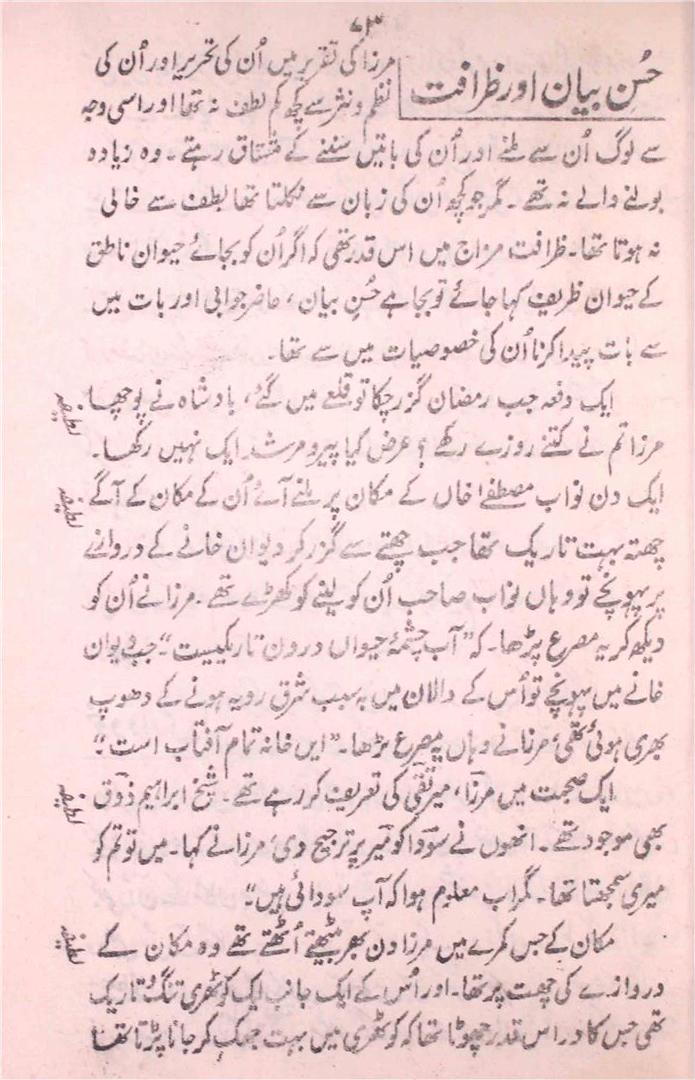 ۷۳
حُسنِ بیان اور ظرافت
مرزا کی تقریر میں اُن کی تحریر اور اُن کی
نظم و نثر سے کچھ کم لطف نہ تھا اور اسی وجہ
سے لوگ اُن سے ملنے اور اُن کی باتیں سننے کے مشتاق رہتے ۔ وہ زیادہ
بولنے والے نہ تھے ۔ مگر جو کچھ اُن کی زبان سے نکلتا تھا لطف سے خالی
نہ ہوتا تھا۔ ظرافت مزاج میں اس قدر تھی کہ اگر اُن کو بجائے حیوان ناطق
کے حیوان ظریف کہا جائے تو بجا ہے حُسنِ بیان ، حاضر جوابی اور بات میں
سے بات پیدا کرنا اُن کی خصوصیات میں سے تھا۔
لطیفہ
ایک دفعہ جب رمضان گزر چکا تو قلعے میں گئے ، بادشاہ نے پوچھا
مرزا تم نے کتنے روزے رکھے ؟ عرض کیا پیر و مرشد ایک نہیں رکھا۔
لطیفہ
ایک دن نواب مصطفےٰ خاں کے مکان پر ملنے آئے اُن کے مکان کے آگے
چھتہ بہت تاریک تھا جب چھتے سے گزر کر دیوان خانے کے دروازے
پر پہونچے تو وہاں نواب صاحب اُن کو لینے کو کھڑے تھے ۔ مرزا نے اُن کو
دیکھ کر یہ مصرع پڑھا۔ کہ ”آب چشمۂ حیواں درون تاریکیست“ جب دیوان
خانے میں پہونچے تو اُس کے دالان میں بہ سبب شرق رویہ ہونے کے دھوپ
بھری ہوئی تھی ، مرزا نے وہاں یہ مصرع پڑھا۔ ”ایں خانہ تمام آفتاب است“
لطیفہ
ایک صحبت میں مرزا ، میر تقی کی تعریف کر رہے تھے ۔ شیخ ابراہیم ذوق
بھی موجود تھے ۔ انھوں نے سودا کو میر پر ترجیح دی ، مرزا نے کہا۔ میں تو تم کو
میری سمجھتا تھا ۔ مگر اب معلوم ہوا کہ آپ سودائی ہیں“
لطیفہ
مکان کے جس کمرے میں مرزا دن بھر بیٹھتے اُٹھتے تھے وہ مکان کے
دروازے کی چھت پر تھا۔ اور اُس کے ایک جانب ایک کوٹھری تنگ و تاریک
تھی جس کا در اس قدر چھوٹا تھا کہ کوٹھری میں بہت جھک کر جانا پڑتا تھا